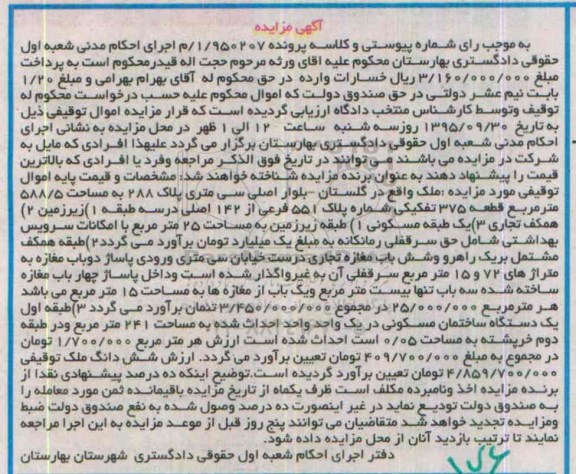 آگهی مزایده
به موجب رای شماره پیوستی و کلاسه پرونده ۱/۹۵۰۲۰۷/م اجرای احکام مدنی شعبه اول
حقوقی دادگستری بهارستان محکوم علیه اقای ورثه مرحوم حجت اله قیدرمحکوم است به پرداخت
مبلغ ۳/۱۶۰/۰۰۰/۰۰۰ ریال خسارات وارده در حق محکوم له آقای بهرام بهرامی و مبلغ ۱/۲۰
بابت نیم عشر دولتی در حق صندوق دولت که اموال محکوم علیه حسب درخواست محکوم له
توقیف وتوسط کارشناس منتخب دادگاه ارزیابی گردیده است که قرار مزایده اموال توقیفی ذیل
به تاریخ ۱۳۹۵/۰۹/۳۰ روزسه شنبه ساعت ۱۲ الی ۱ ظهر در محل مزایده به نشانی اجرای
احکام مدنی شعبه اول حقوقی دادگستری بهارستان برگزار می گردد علیهذا افرادی که مایل به
شرکت در مزایده می باشند می توانند در تاریخ فوق الذکر مراجعه وفرد یا افرادی که بالاترین
قیمت را پیشنهاد دهند به عنوان برنده مزایده شناخته خواهند شد: مشخصات و قیمت پایه اموال
توقیفی مورد مزایده :ملک واقع در گلستان -بلوار اصلی سی متری پلاک ۲۸۸ به مساحت ۵۸۸/۵
مترمربع قطعه ۳۷۵ تفکیکی شماره پلاک ۵۵۱ فرعی از ۱۴۲ اصلی درسه طبقه ۱)زیرزمین ۲)
همکف تجاری ۳)یک طبقه مسکونی ۱) طبقه زیرزمین به مساحت ۲۵ متر مربع با امکانات سرویس
بهداشتی شامل حق سرقفلی رمانکانه به مبلغ یک میلیارد تومان برآورد می گردد۲)طبقه همکف
مشتمل بریک راهرو وشش باب مغازه تجاری درست خیابان سی متری ورودی پاساژ دوباب مغازه به
متراژ های ۷۲ و ۱۵ متر مربع سرقفلی آن به غیرواگذار شده است وداخل پاساژ چهار باب مغازه
ساخته شده سه باب تنها بیست متر مربع ویک باب از مغازه ها به مساحت ۱۵ متر مربع می باشد
هر مترمربع ۲۵/۰۰۰/۰۰۰ در مجموع ۳/۴۵۰/۰۰۰/۰۰۰ تمان برآورد می گردد ۳)طبقه اول
یک دستگاه ساختمان مسکونی در یک واحد واحد احداث شده به مساحت ۲۴۱ متر مربع ودر طبقه
دوم خرپشته به مساحت ۰/۰۵ است احداث شده است ارزش هر متر مربع ۱/۷۰۰/۰۰۰ تومان
در مجموع به مبلغ ۴۰۹/۷۰۰/۰۰۰ تومان تعیین برآورد می گردد. ارزش شش دانگ ملک توقیفی
۴/۸۵۹/۷۰۰/۰۰۰ تومان تعیین برآورد گردیده است.توضیح اینکه ده درصد پیشنهادی نقدا از
برنده مزایده اخذ ونامبرده مکلف است ظرف یکماه از تاریخ مزایده باقیمانده ثمن مورد معامله را
به صندوق دولت تودیع نماید در غیر اینصورت ده درصد وصول شده به نفع صندوق دولت ضبط
ومزایده تجدید خواهد شد متقاضیان می توانند پنج روز قبل از موعد مزایده به این اجرا مراجعه
نمایند تا ترتیب بازدید آنان از محل مزایده داده شود.
دفتر اجرای احکام شعبه اول حقوقی دادگستری شهرستان بهارستان